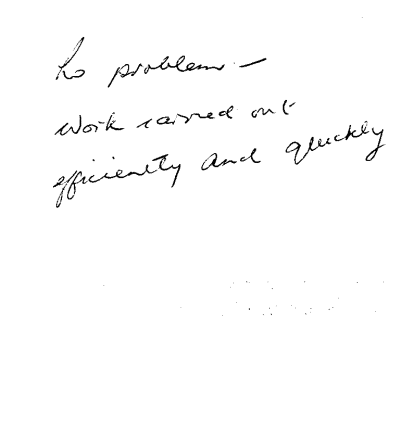 No problem -
Work carried out
efficiently and quickly